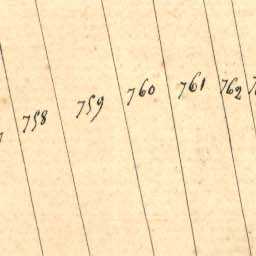 758 759 760 761 762